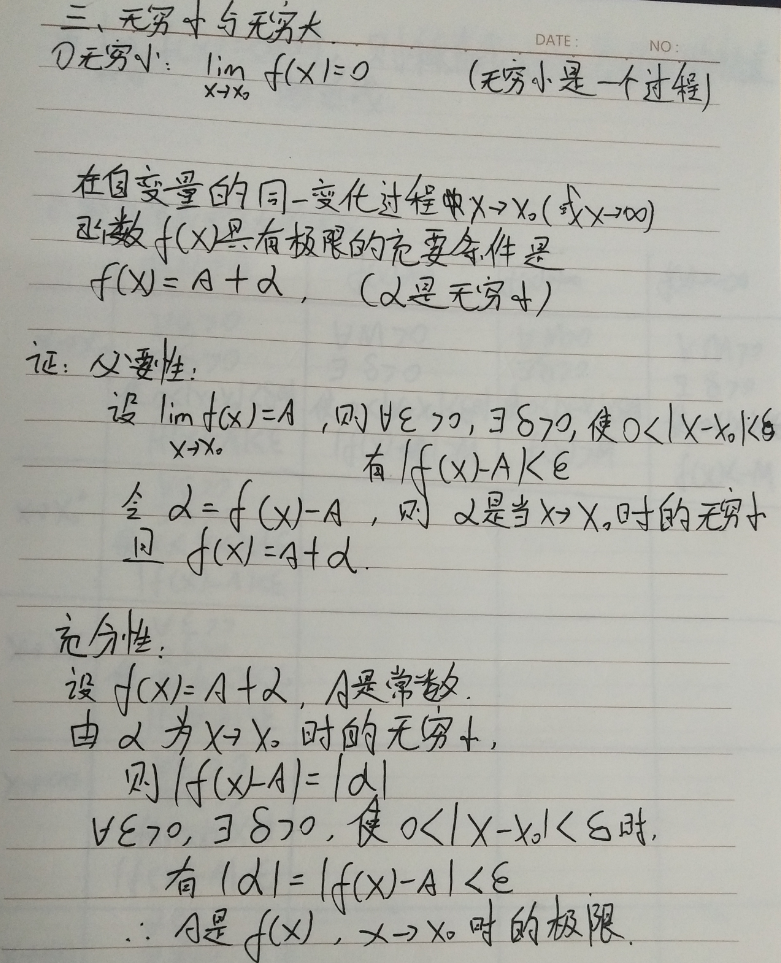 三、无穷小与无穷大
DATE: NO:
①无穷小: lim f(x)=0 (无穷小是一个过程)
x→x₀
在自变量的同一变化过程中x→x₀(或x→∞)
函数f(x)具有极限的充要条件是
f(x)=A+α, (α是无穷小)
证: 必要性:
设 lim f(x)=A, 则∀ε>0, ∃δ>0, 使0<|x-x₀|<δ
x→x₀
有|f(x)-A|<ε
令 α=f(x)-A, 则 α是当x→x₀时的无穷小
且 f(x)=A+α.
充分性:
设 f(x)=A+α, A是常数.
由 α 为 x→x₀ 时的无穷小,
则|f(x)-A|=|α|
∀ε>0, ∃δ>0, 使 0<|x-x₀|<δ时,
有 |α|=|f(x)-A|<ε
∴ A是 f(x), x→x₀ 时的极限.